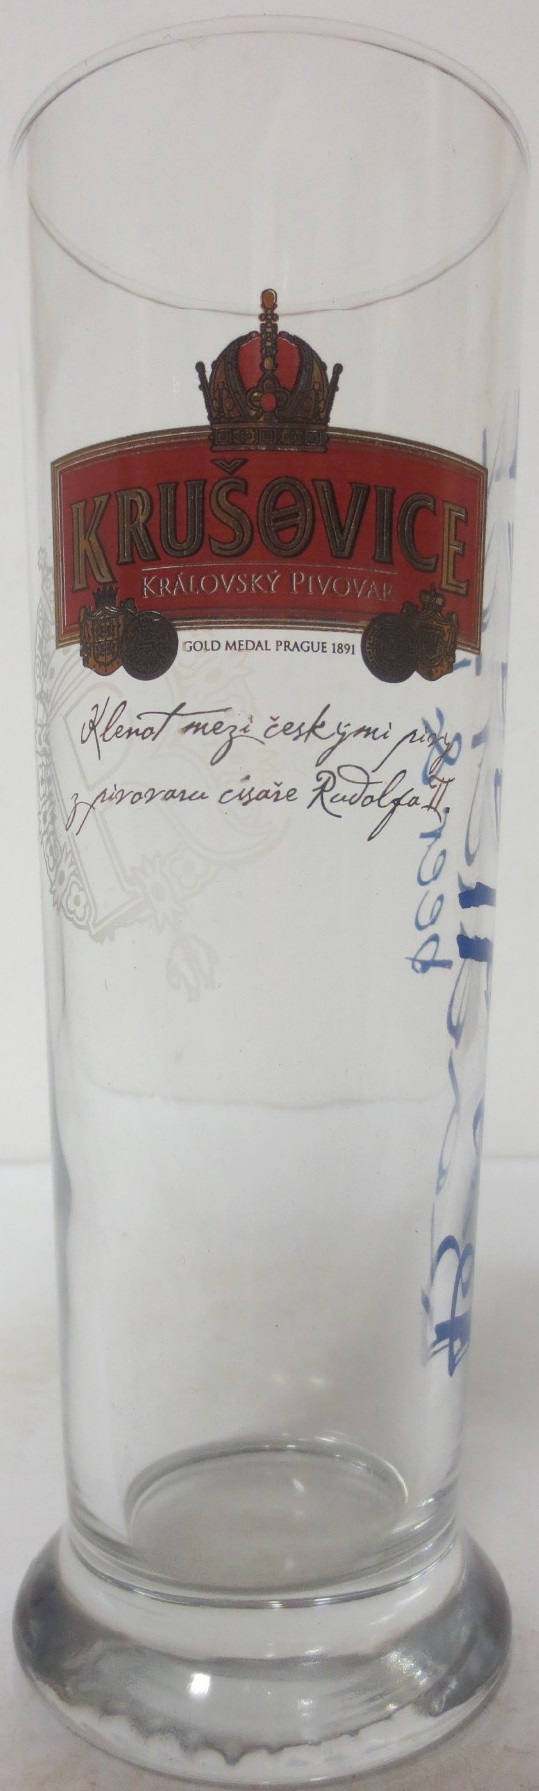 KRUŠOVICE
KRÁLOVSKÝ PIVOVAR
GOLD MEDAL PRAGUE 1891
Klenot mezi českými pivy
z pivovaru císaře Rudolfa II.